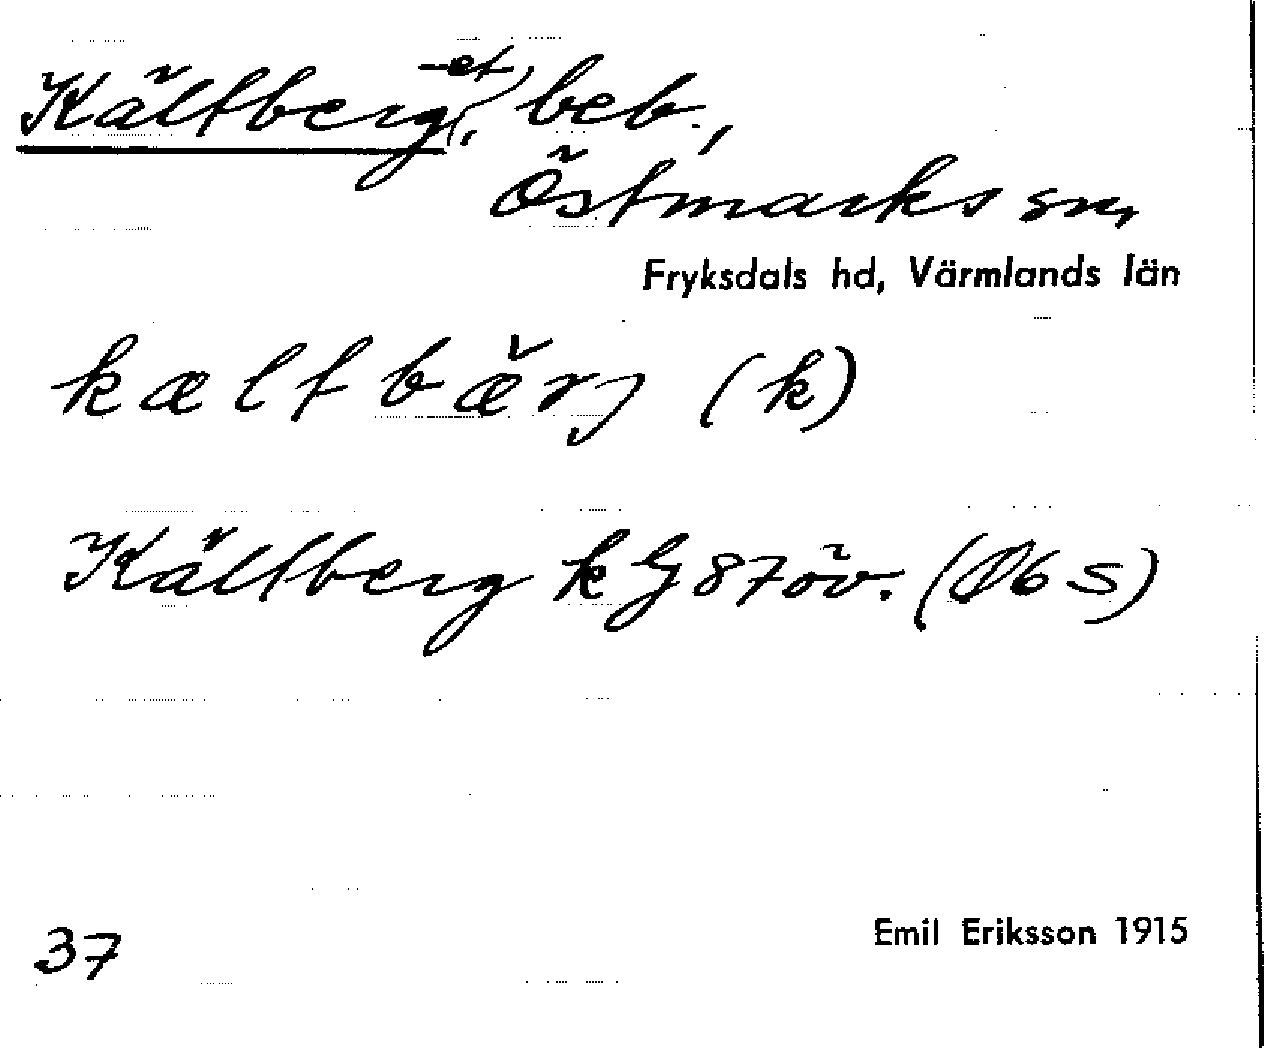 Kältberg, -et, beb.,
Östmarks sn,
Fryksdals hd, Värmlands län
kæltbærj (k)
Kältberg k G 87 öv. (Ö6 S)
37
Emil Eriksson 1915